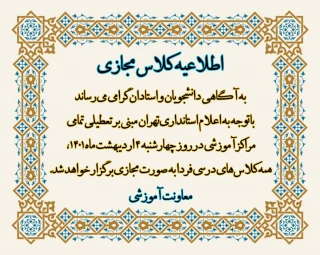 اطلاعیه کلاس مجازی
به آگاهی دانشجویان و استادان گرامی می رساند
با توجه به اعلام استانداری تهران مبنی بر تعطیلی تمامی
مراکز آموزشی در روز چهارشنبه ۱۴ اردیبهشت ماه ۱۴۰۱،
همه کلاس های درسی فردا به صورت مجازی برگزار خواهد شد.
معاونت آموزشی